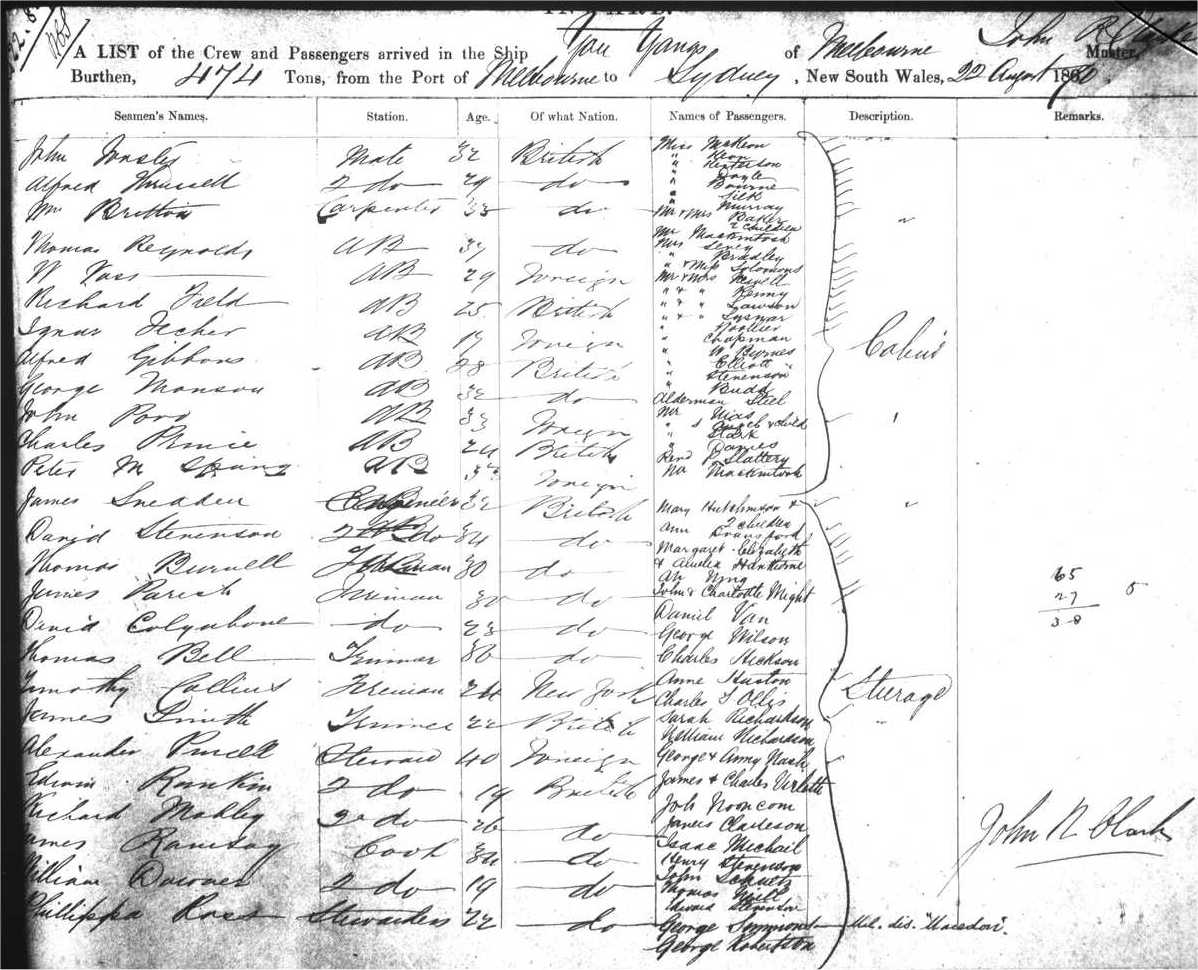 INWARD.
John R Clarke
A LIST of the Crew and Passengers arrived in the Ship You Yangs of Melbourne Master,
Burthen, 474 Tons, from the Port of Melbourne to Sydney, New South Wales, 22 August 1870.
Seamen's Names. Station. Age. Of what Nation. Names of Passengers. Description. Remarks.
John Mate 32 British
Alfred 2 do 29 do
Wm Britton Carpenter 33 do
Thomas Reynolds AB 37 do
W AB 29 Foreign
Richard Field AB 25 British
AB 19 Foreign
Alfred Gibbons AB 28 British
George Monson AB 32 do
John AB 33 Foreign
Charles Prince AB 24 British
Peter M AB Foreign
James Snedden Engineer 32 British
David Stevenson 2 do 34 do
Thomas Burnell Fireman 30 do
James Parish Fireman 30 do
David do 23 do
Thomas Bell Trimmer 30 do
Timothy Collins Fireman 24 New York
James Smith Trimmer 22 British
Alexander Purcell Steward 40 Foreign
Edwin Rankin 2 do 19 British
Richard Mobley 2 do 26 do
James Ramsay Cook 34 do
William Downes 2 do 19 do
Phillippa Ross Stewardess 22 do
Miss McKeon
" Keon
" Henderson
" Doyle
" Bourne
" Silk
" Murray
Mr & Mrs Baker
2 children
Mr Mackintosh
Mrs
" Bradley
" & Miss Solomons
Mr & Mrs Newell
" & " Kenny
" & " Lawson
" & " Lysnar
"
" Chapman
" W Byrnes
" Elliott
" Stevenson
" Budd
Alderman Steel
Mr
" & child
" Stark
" Davies
Revd Slattery
Mr Mackintosh
Cabin
Mary Hutchinson &
2 children
Ann
Margaret Elizabeth
& Amelia Hawthorne
Ah
John & Charlotte Might
Daniel Van
George Wilson
Charles Hickson
Anne Huston
Charles Ollis
Sarah Richardson
William Richardson
George & Amy Nash
James & Charles
Job
James Clarkson
Isaac Michael
Henry Stevenson
John Schultz
Thomas Neill
Edward Stevenson
George Simmons Mel. dis. "Macedon".
George Robertson
Steerage
65 5
27
38
John R Clark